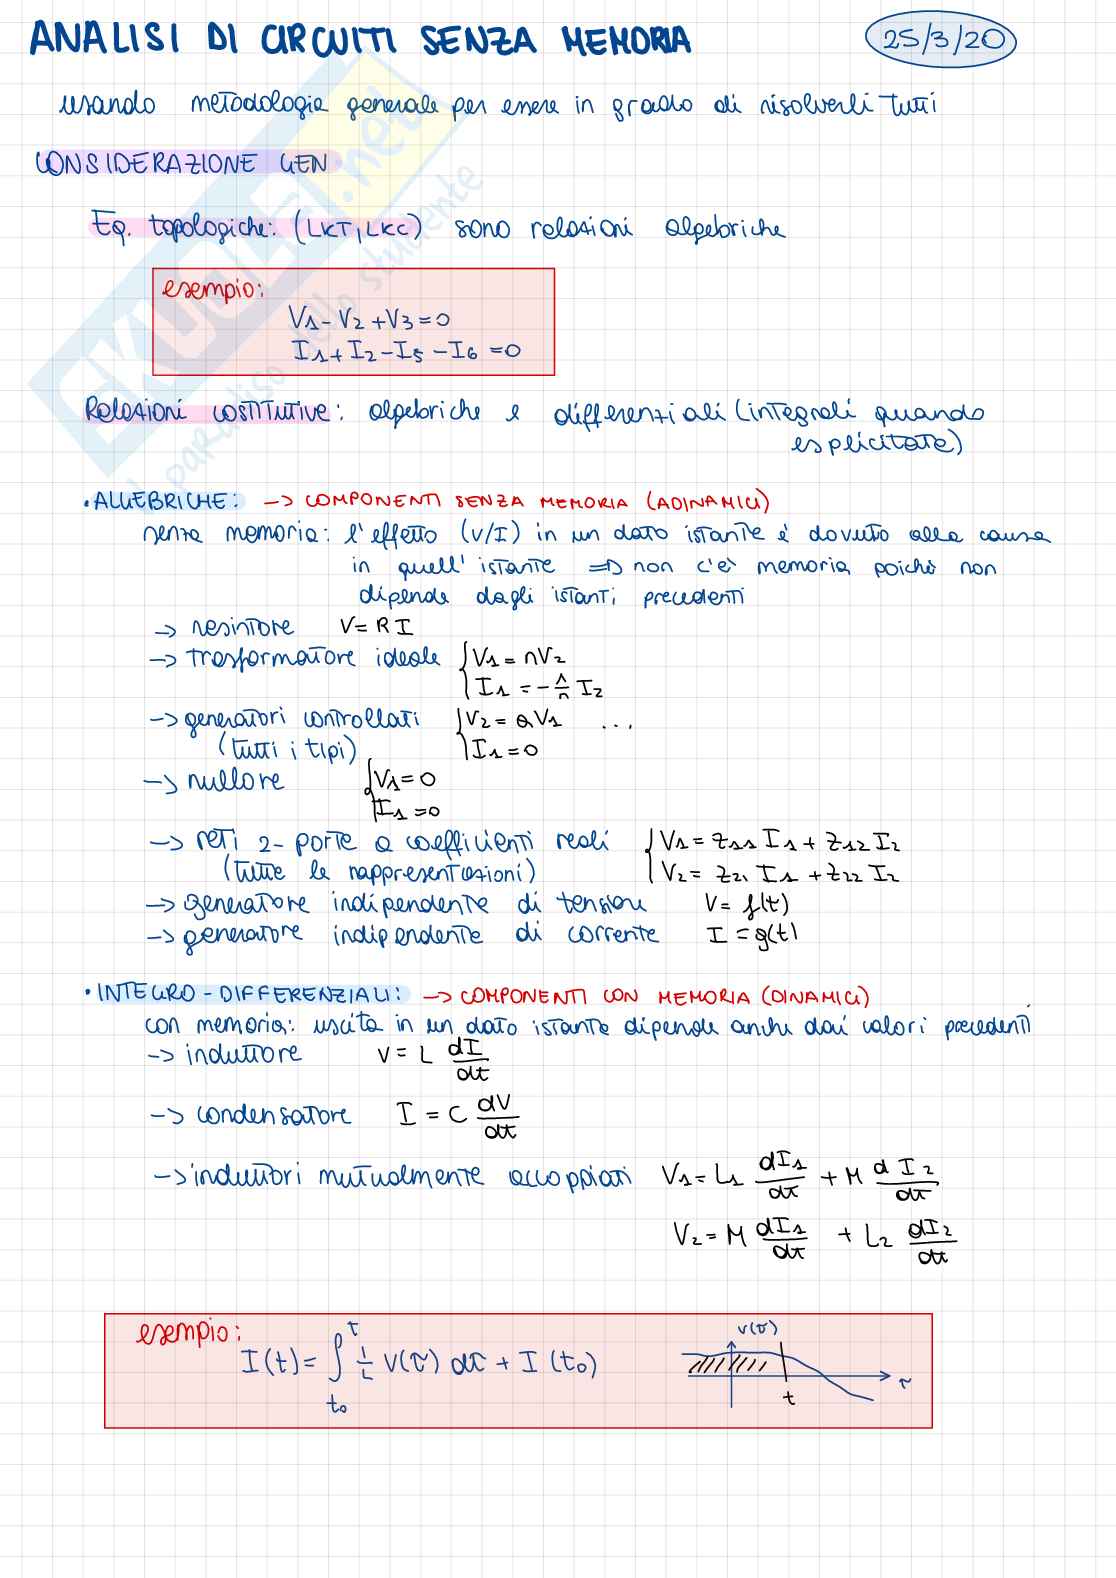 ANALISI DI CIRCUITI SENZA MEMORIA 25/3/20
usando metodologia generale per essere in grado di risolverli tutti
CONSIDERAZIONE GEN
Eq. topologiche: (LKT, LKC) sono relazioni algebriche
esempio:
V1 - V2 + V3 = 0
I1 + I2 - I5 - I6 = 0
Relazioni costitutive: algebriche e differenziali (integrali quando
esplicitate)
• ALGEBRICHE: -> COMPONENTI SENZA MEMORIA (ADINAMICI)
senza memoria: l'effetto (V/I) in un dato istante è dovuto alla causa
in quell'istante => non c'è memoria poichè non
dipende dagli istanti precedenti
-> resistore V = R I
-> trasformatore ideale { V1 = nV2
I1 = - 1/n I2
-> generatori controllati { V2 = αV1 ...
(tutti i tipi) I1 = 0
-> nullore { V1 = 0
I1 = 0
-> reti 2-porte a coefficienti reali { V1 = z11 I1 + z12 I2
(tutte le rappresentazioni) V2 = z21 I1 + z22 I2
-> generatore indipendente di tensione V = f(t)
-> generatore indipendente di corrente I = g(t)
• INTEGRO-DIFFERENZIALI: -> COMPONENTI CON MEMORIA (DINAMICI)
con memoria: uscita in un dato istante dipende anche dai valori precedenti
-> induttore V = L dI/dt
-> condensatore I = C dV/dt
-> induttori mutualmente accoppiati V1 = L1 dI1/dt + M dI2/dt
V2 = M dI1/dt + L2 dI2/dt
esempio:
I(t) = ∫ t0 t 1/L V(τ) dτ + I(t0)
v(τ)
t
τ
SKUOLA.net
il paradiso dello studente